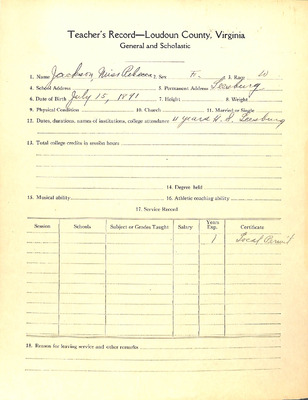 Teacher's Record—Loudoun County, Virginia
General and Scholastic
1. Name Jackson, Miss Rebecca 2. Sex F. 3. Race W.
4. School Address 5. Permanent Address Leesburg
6. Date of Birth July 15, 1891 7. Height 8. Weight
9. Physical Condition 10. Church 11. Married or Single
12. Dates, durations, names of institutions, college attendance 4 years H. S. Leesburg
13. Total college credits in session hours
14. Degree held
15. Musical ability 16. Athletic coaching ability
17. Service Record
Session Schools Subject or Grades Taught Salary Years Exp. Certificate
1 Local Permit
18. Reason for leaving service and other remarks